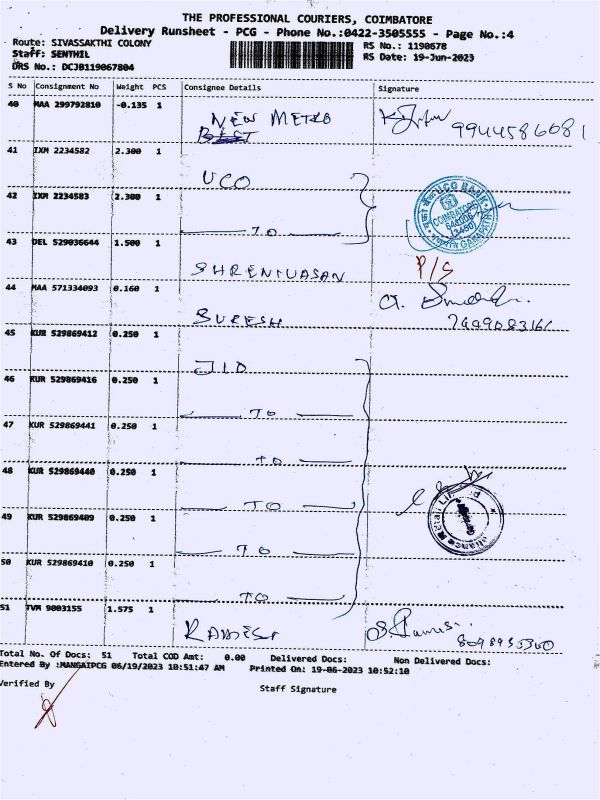 THE PROFESSIONAL COURIERS, COIMBATORE
Delivery Runsheet - PCG - Phone No.:0422-3505555 - Page No.:4
Route: SIVASSAKTHI COLONY
Staff: SENTHIL
DRS No.: DCJB119067804
RS No.: 1190678
RS Date: 19-Jun-2023
S No Consignment No Weight PCS Consignee Details Signature
40 MAA 299792810 -0.135 1 NEW METRO 9944586081
41 IXM 2234582 2.300 1 UCO
42 IXM 2234583 2.300 1 TO
UCO BANK
COIMBATORE
43 DEL 529036644 1.500 1 SHRENIVASAN P/S
44 MAA 571334093 0.160 1 SURESH
45 KUR 529869412 0.250 1 JIO
46 KUR 529869416 0.250 1 TO
47 KUR 529869441 0.250 1 TO
48 KUR 529869440 0.250 1 TO
49 KUR 529869409 0.250 1 TO
50 KUR 529869410 0.250 1 TO
51 TVM 9003155 1.575 1 RAMESH
Total No. Of Docs: 51 Total COD Amt: 0.00 Delivered Docs: Non Delivered Docs:
Entered By :MANGAIPCG 06/19/2023 10:51:47 AM Printed On: 19-06-2023 10:52:10
Verified By
Staff Signature